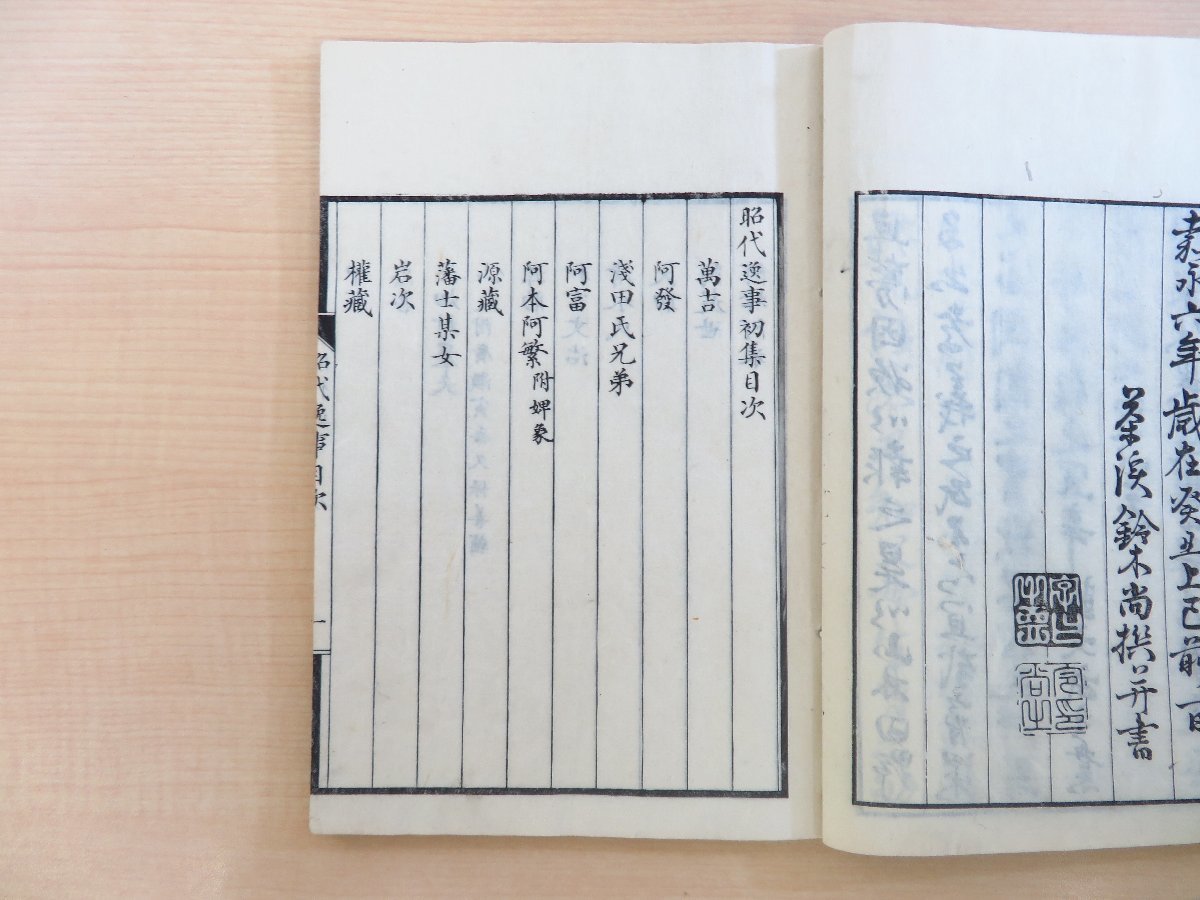 嘉永六年歲在癸丑上巳前一日
茶溪鈴木尚撰并書
昭代逸事初集目次
萬吉
阿發
淺田氏兄弟
阿富
阿本阿繁附婢象
源藏
藩士某女
岩次
權藏
昭代逸事目次
一